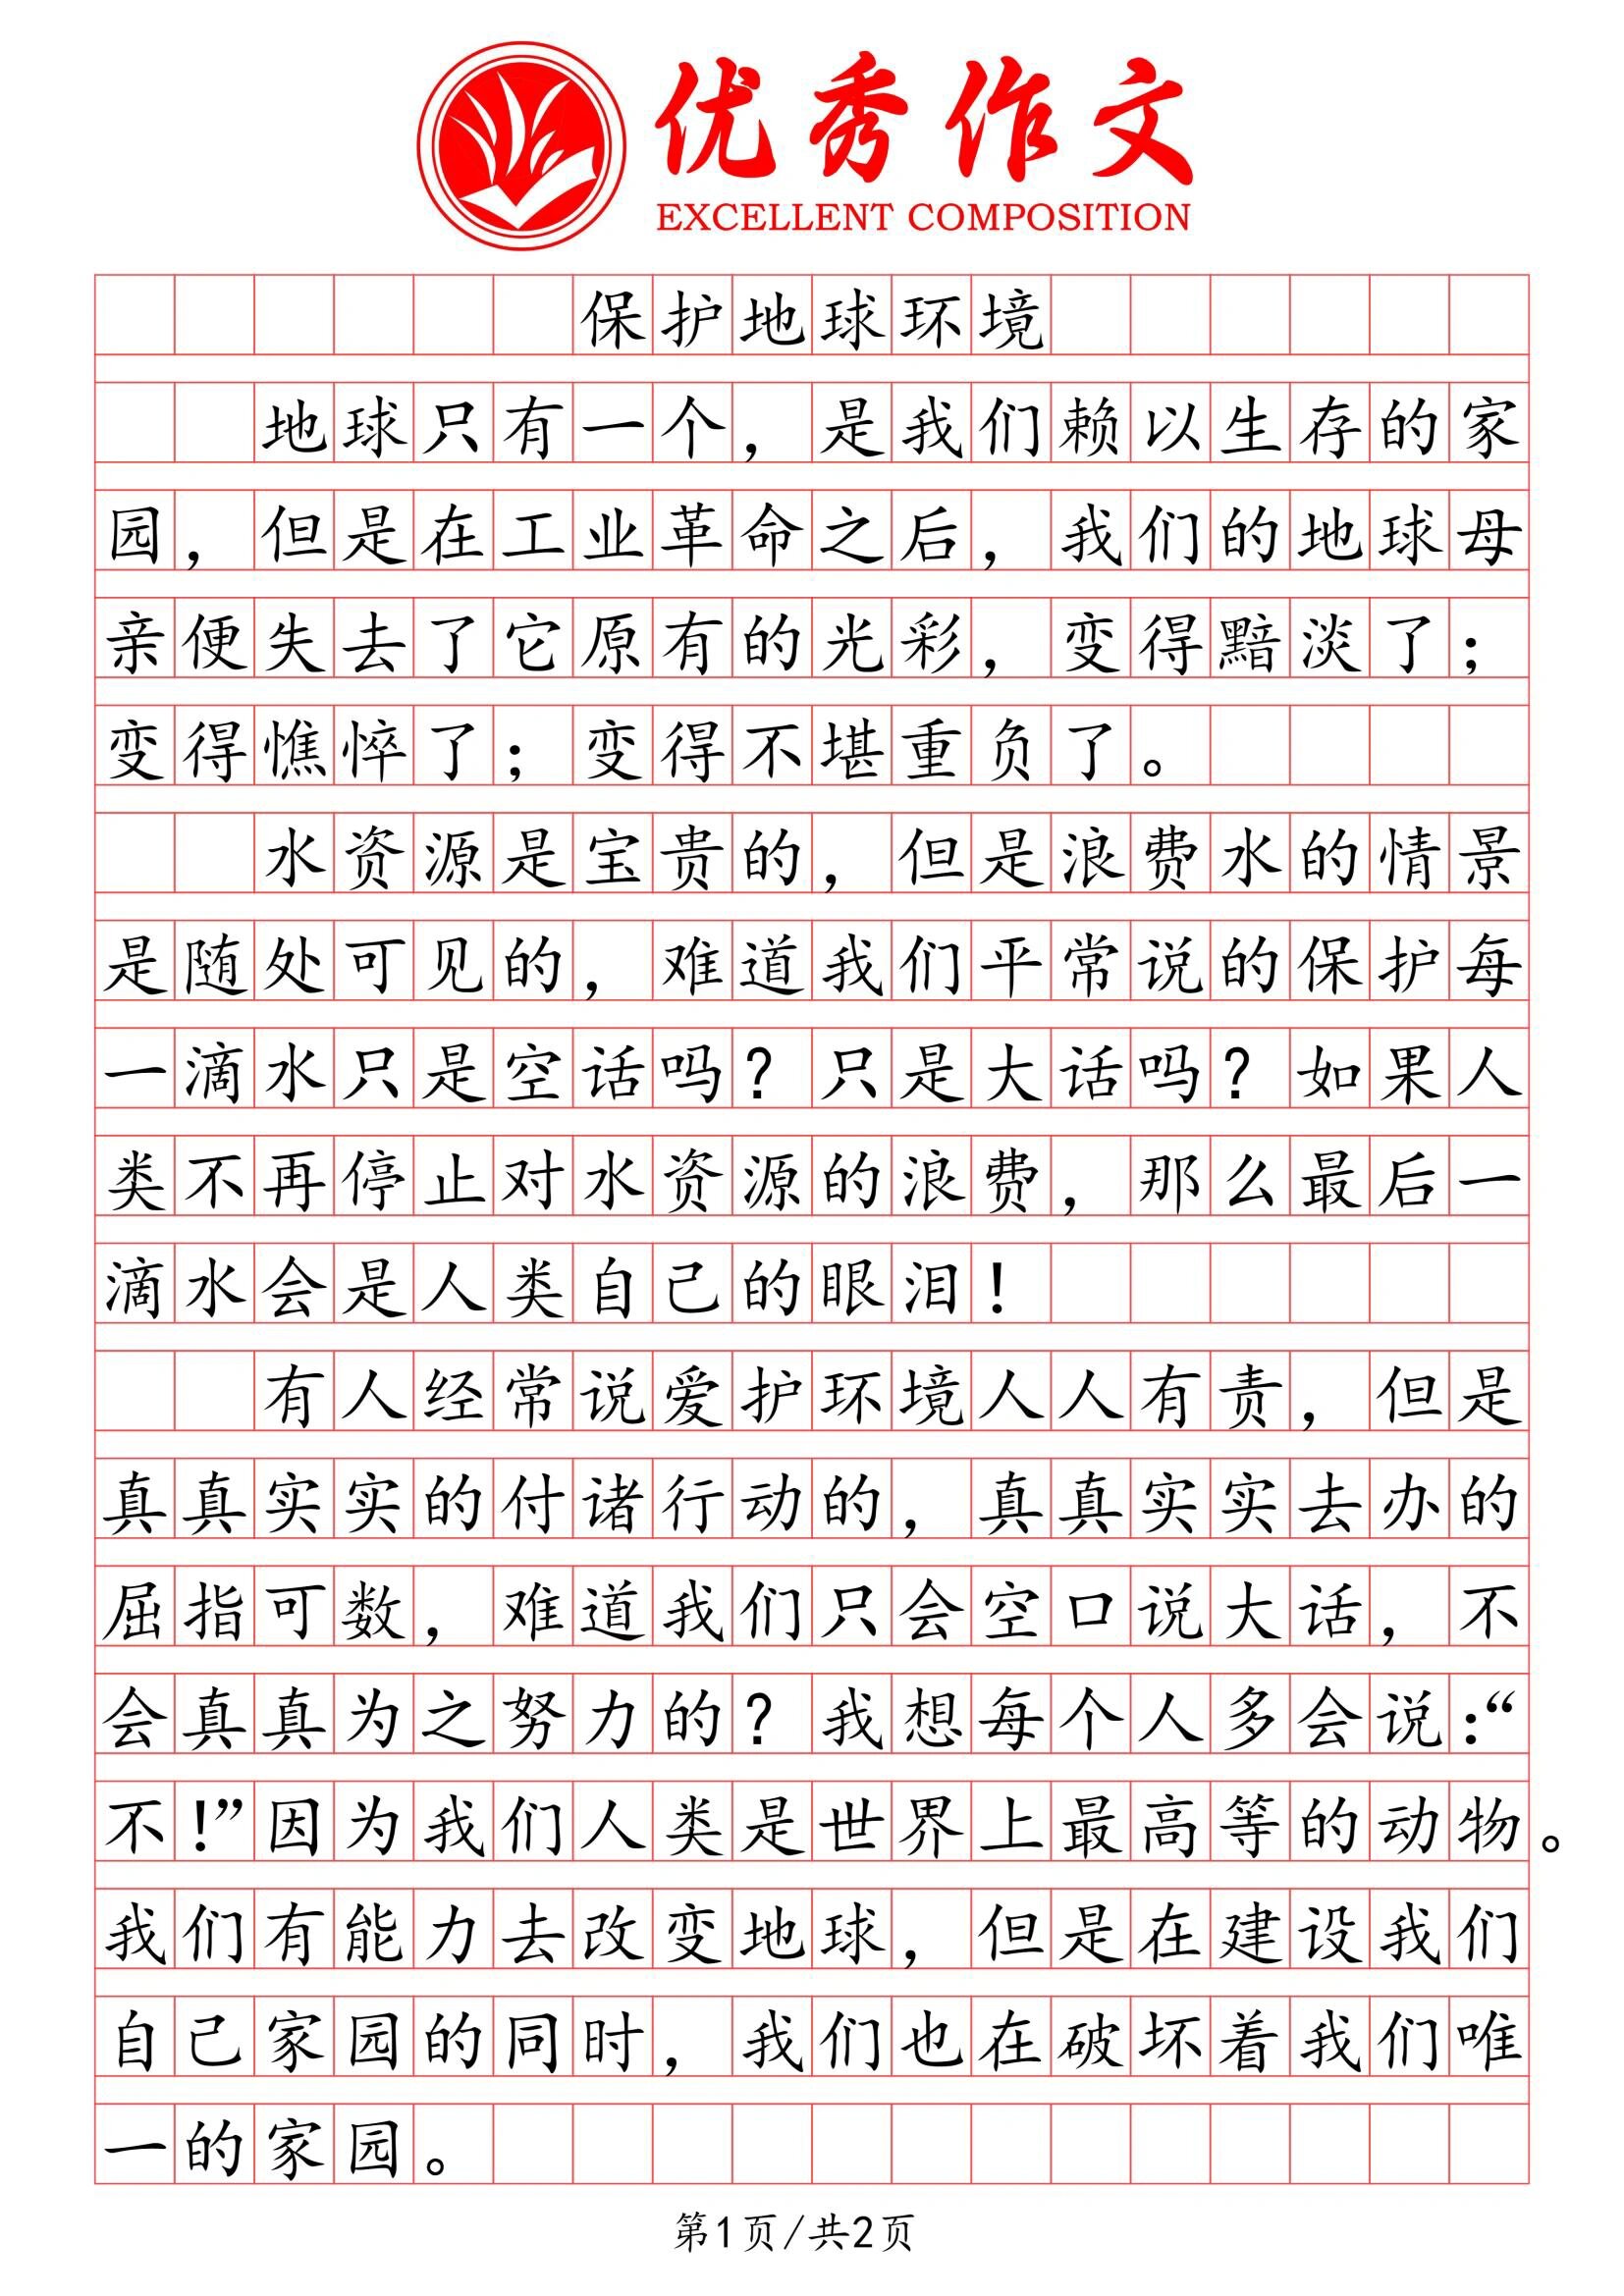 优秀作文
EXCELLENT COMPOSITION
保护地球环境
地球只有一个，是我们赖以生存的家
园，但是在工业革命之后，我们的地球母
亲便失去了它原有的光彩，变得黯淡了；
变得憔悴了；变得不堪重负了。
水资源是宝贵的，但是浪费水的情景
是随处可见的，难道我们平常说的保护每
一滴水只是空话吗？只是大话吗？如果人
类不再停止对水资源的浪费，那么最后一
滴水会是人类自己的眼泪！
有人经常说爱护环境人人有责，但是
真真实实的付诸行动的，真真实实去办的
屈指可数，难道我们只会空口说大话，不
会真真为之努力的？我想每个人多会说：“
不！”因为我们人类是世界上最高等的动物。
我们有能力去改变地球，但是在建设我们
自己家园的同时，我们也在破坏着我们唯
一的家园。
第1页/共2页